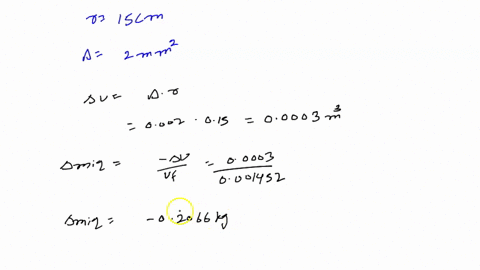 r= 15cm
A= 2mm²
ΔV = A·r
= 0.002 · 0.15 = 0.0003 m³
Δmiq = -ΔV/Vf = 0.0003/0.001452
Δmiq = -0.2066 kg